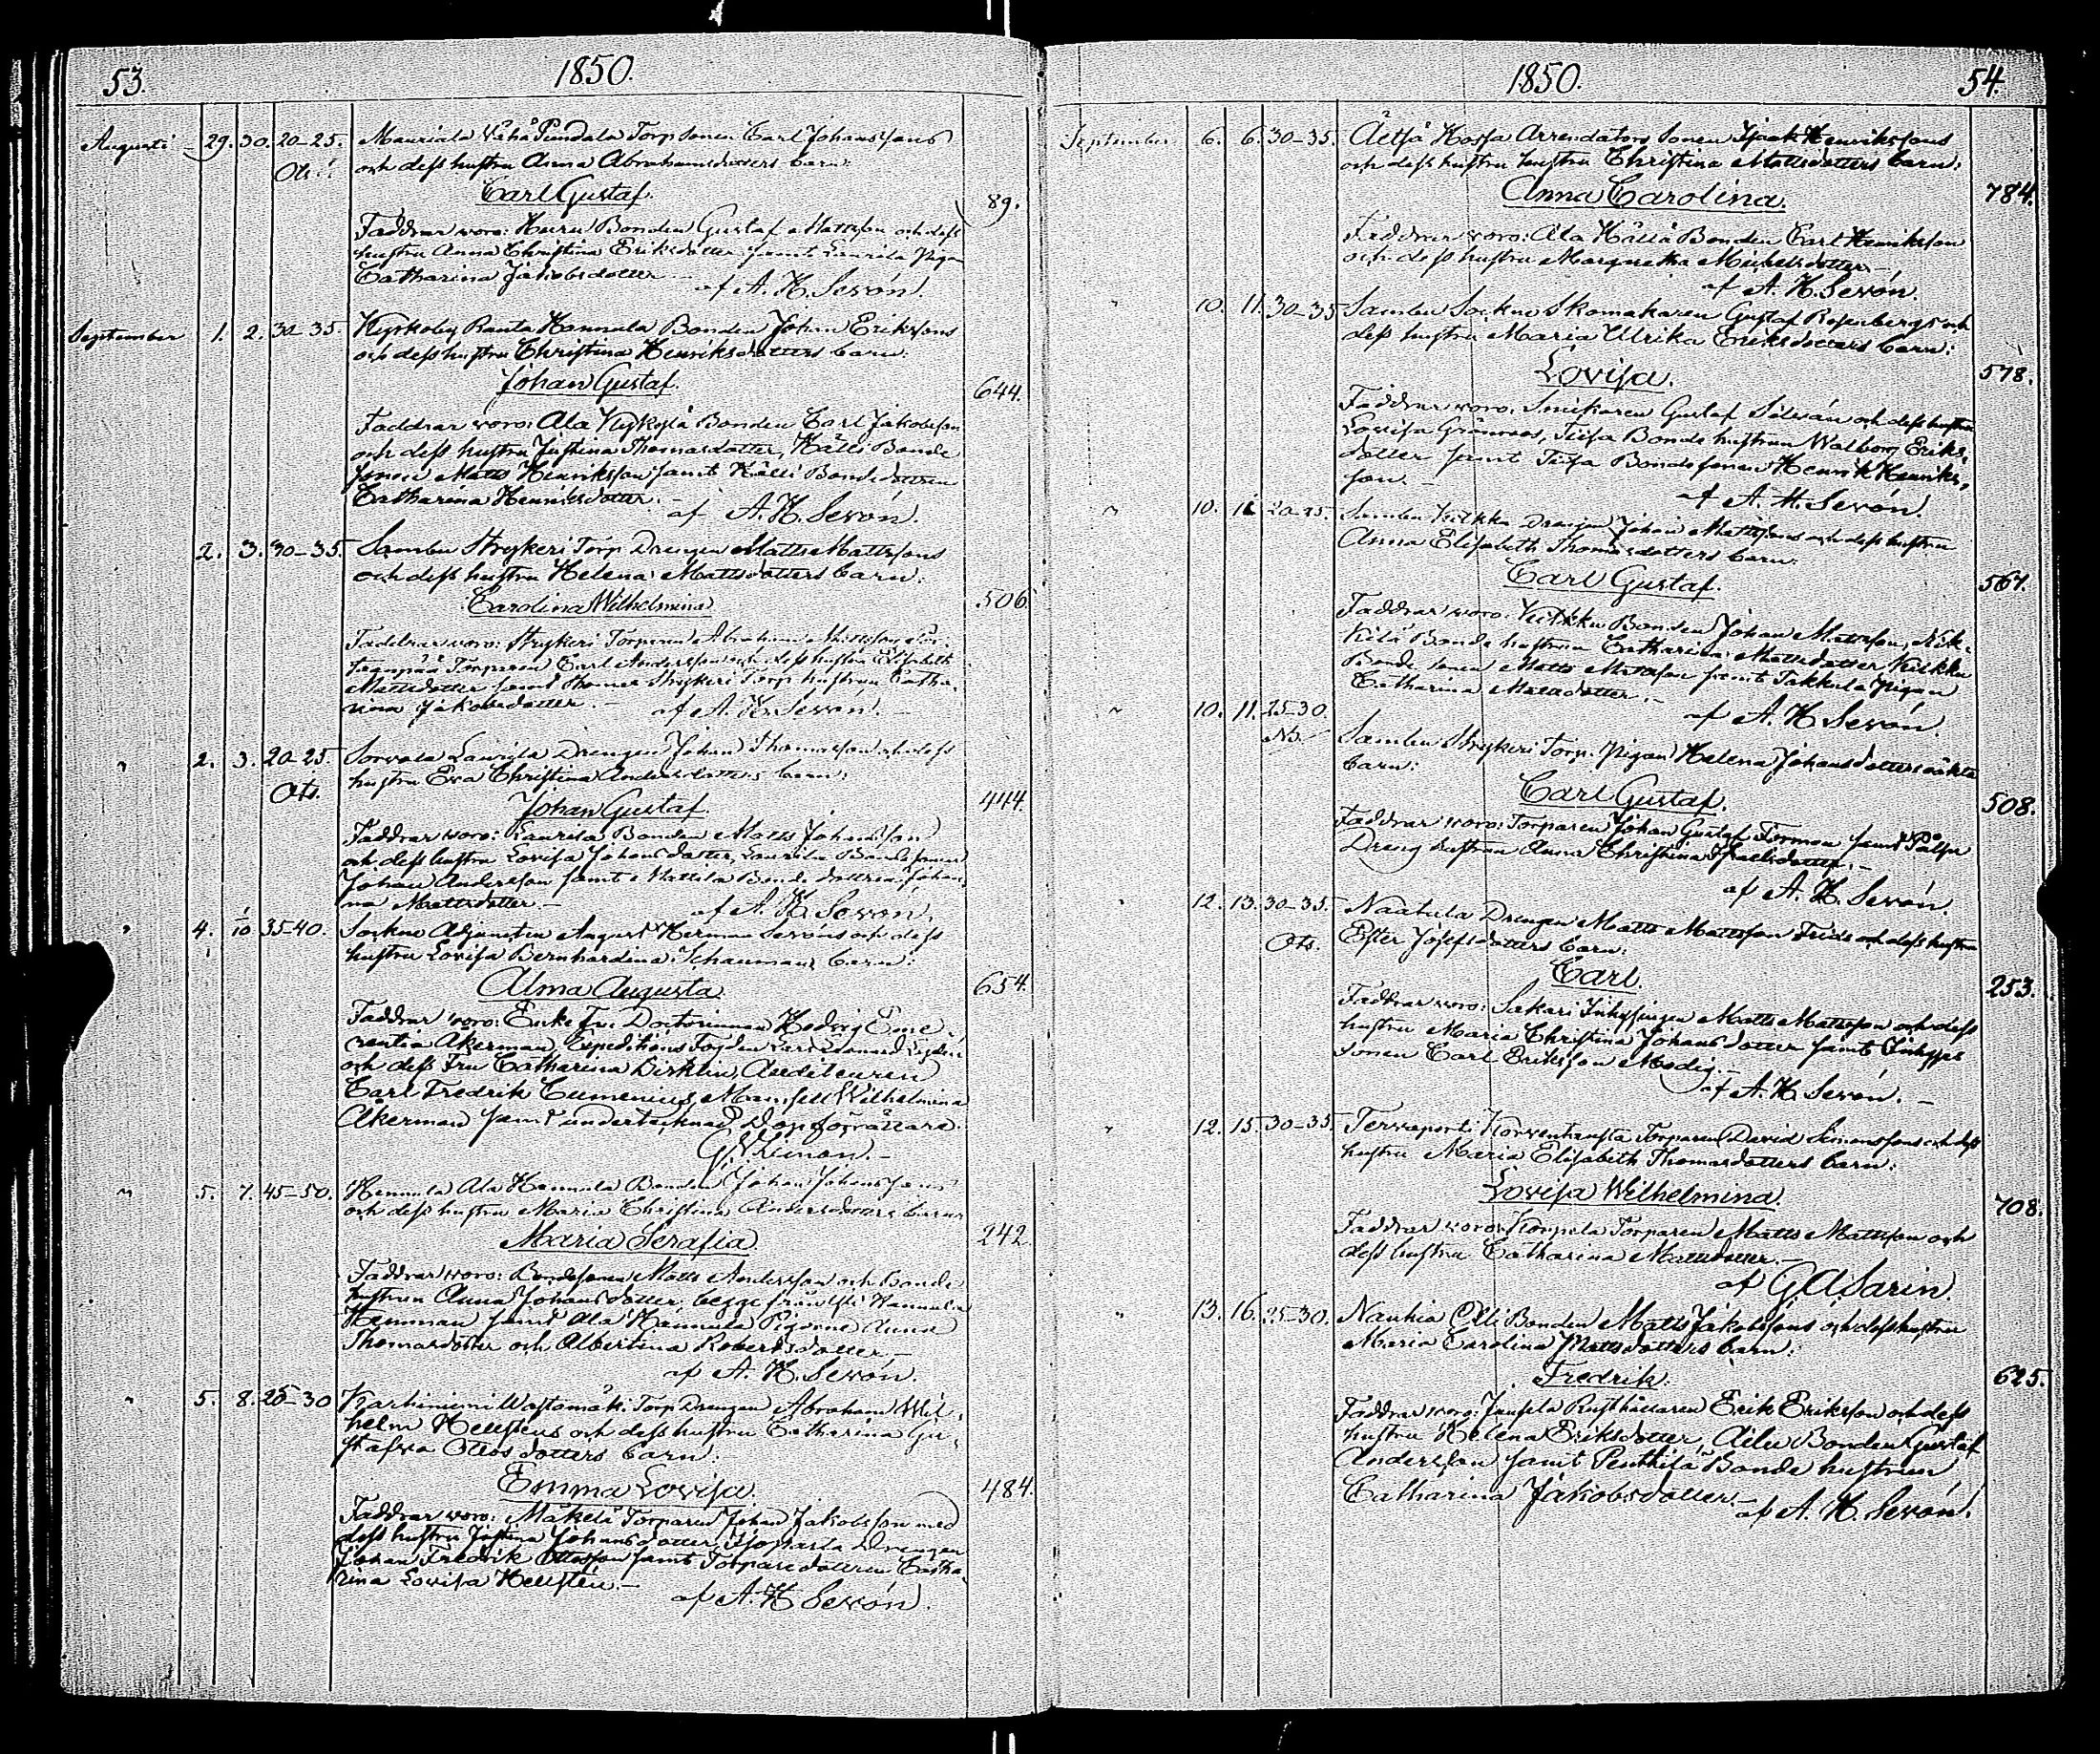 53. 1850.
Augusti - 29. 30. 20-25. Mauriala Torp Sonen Carl Johanssons
och dess hustru Anna Abrahamsdotters barn:
Carl Gustaf. 89.
Faddrar woro: Bonden Gustaf Mattsson och dess
hustru Anna Christina Eriksdotter samt Laurila Pigan
Catharina Jakobsdotter. -
af A. H. Sevón.
September 1. 2. 30-35. Kyrkoby Ranta Hannula Bonden Johan Erikssons
och dess hustru Christina Henriksdotters barn:
Johan Gustaf. 644.
Faddrar woro: Ala Bonden Carl Jakobsson
och dess hustru Justina Thomasdotter, Källi Bonde
sonen Matts Henriksson samt Källi Bondedottren
Catharina Henriksdotter. - af A. H. Sevón.
2. 3. 30-35. Sambu Strykeri Torp Drengen Matts Mattssons
och dess hustru Helena Mattsdotters barn:
Carolina Wilhelmina 506.
Faddrar woro: Strykeri Torparen Abraham
Torparen Carl Andersson och dess hustru Elisabeth
Mattsdotter samt Strykeri Torp hustrun Catha-
rina Jakobsdotter. - af A. H. Sevón. -
" 2. 3. 20-25. Sorvala Laurila Drengen Johan Thomasson och dess
hustru Eva Christina Andersdotters barn:
Johan Gustaf. 444.
Faddrar woro: Laurila Bonden Matts Johansson
och dess hustru Lovisa Johansdotter, Laurila Bondesonen
Johan Andersson samt Mattila Bonde dottren Johan-
na Mattsdotter. - af A. H. Sevón.
" 4. 1/10 35-40. Sockne Adjuncten August Herman Sevóns och dess
hustru Lovisa Bernhardina Schaumans barn:
Alma Augusta. 654.
Faddrar woro: Enke Fru Doctorinnan Hedvig Eme-
rentia Åkerman, Expeditions Fogden
och dess Fru Catharina Auditeuren
Carl Fredrik Cumenius, Mamsell Wilhelmina
Åkerman samt undertecknad Dopförrättare.
" 5. 7. 45-50. Hannula Ala Hannula Bonden Johan Johanssons
och dess hustru Maria Christina Andersdotters barn
Maria Serafia. 242.
Faddrar woro: Bondesonen Matts Andersson och Bonde
hustrun Anna Johansdotter, begge från Hannula
Hemman samt Ala Hannula Pigorne Anna
Thomasdotter och Albertina Robertsdotter. -
af A. H. Sevón.
" 5. 8. 25-30 Karhiniemi Torp Drengen Abraham Wil-
helm Hellstens och dess hustru Catharina Gu-
stafva dotters barn:
Emma Lovisa. 484.
Faddrar woro: Mäkelä Torparen Johan Jakobsson med
dess hustru Justina Johansdotter, Drengen
Johan Fredrik Ottosson samt Torparedottren Catha-
rina Lovisa Hellstén. -
af A. H. Sevón.
1850. 54.
September 6. 6. 30-35. Äetsä Arrendators Sonen Isaak Henrikssons
och dess hustru hustru Christina Mattsdotters barn:
Anna Carolina. 784.
Faddrar woro: Ala Källi Bonden Carl Henriksson
och dess hustru Margaretha Michelsdotter. -
af A. H. Sevón.
10. 11. 30-35 Sambu Sockne Skomakaren Gustaf Rosenbergs och
dess hustru Maria Ulrika Eriksdotters barn:
Lovisa. 578.
Faddrar woro: Snickaren Gustaf och dess hustru
Lovisa Grönroos, Tiisa Bonde hustrun Walborg Eriks-
dotter samt Tiisa Bondesonen Henrik Henriks-
son. - af A. H. Sevón.
" 10. 11. 20-25. Sambu Drengen Johan Mattssons och dess hustru
Anna Elisabeth Thomasdotters barn:
Carl Gustaf. 567.
Faddrar woro: Bonden Johan Mattsson,
Bonde hustrun Catharina Mattsdotter
Bonde sonen Matts Mattsson samt Takkula Pigan
Catharina Mattsdotter. -
af A. H. Sevón.
" 10. 11. 25-30. Sambu Strykeri Torp. Pigan Helena Johansdotters oäkta
barn:
Carl Gustaf. 508.
Faddrar woro: Torparen Johan Gustaf Forman samt
Dreng hustrun Anna Christina -
af A. H. Sevón.
" 12. 13. 30-35. Naatula Drengen Matts Mattsson Frids och dess hustru
Ester Josefsdotters barn:
Carl. 253.
Faddrar woro: Sakari Matts Mattsson och dess
hustru Maria Christina Johansdotter samt
sonen Carl Eriksson Modig. -
af A. H. Sevón. -
" 12. 15. 30-35. Torparen David Simonssons och dess
hustru Maria Elisabeth Thomasdotters barn:
Lovisa Wilhelmina. 708.
Faddrar woro: Korpela Torparen Matts Mattsson och
dess hustru Catharina Mattsdotter. -
af G A Sarin
" 13. 16. 25-30. Nanhia Olli Bonden Matts Jakobssons och dess hustru
Maria Carolina Mattsdotters barn:
Fredrik. 625.
Faddrar woro: Rusthållaren Erik Eriksson och dess
hustru Helena Eriksdotter, Bonden Gustaf
Andersson samt Penttilä Bonde hustrun
Catharina Jakobsdotter. -
af A. H. Sevón.